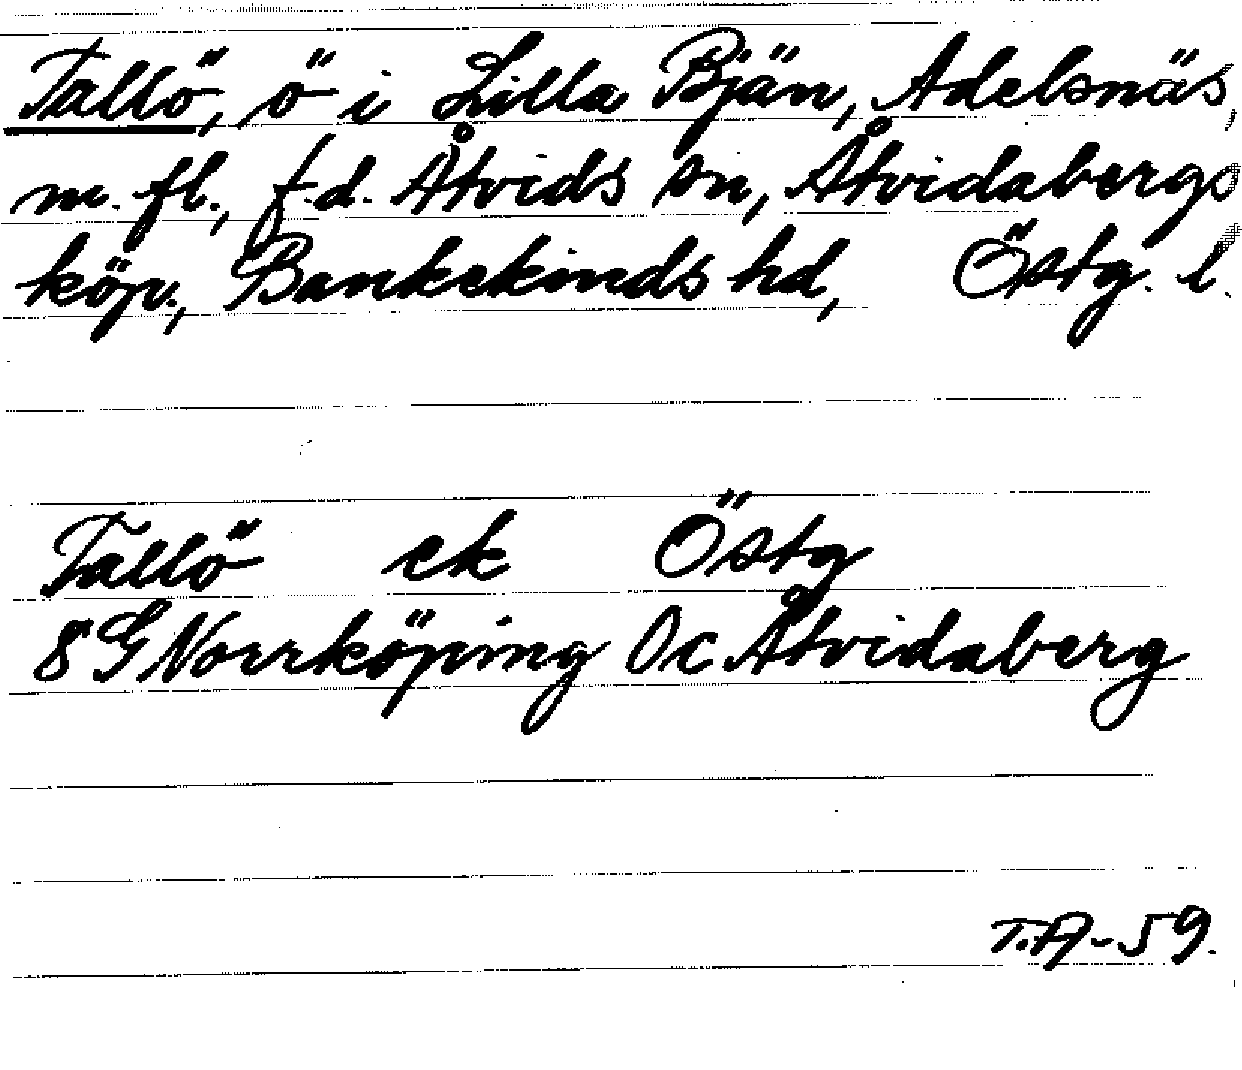 Tallö, ö i Lilla Bjän, Adelsnäs,
m. fl., f.d. Åtvids sn, Åtvidabergs
köp., Bankekinds hd, Östg. l.
Tallö ek Östg
8 G Norrköping Oc Åtvidaberg
T.A-59.